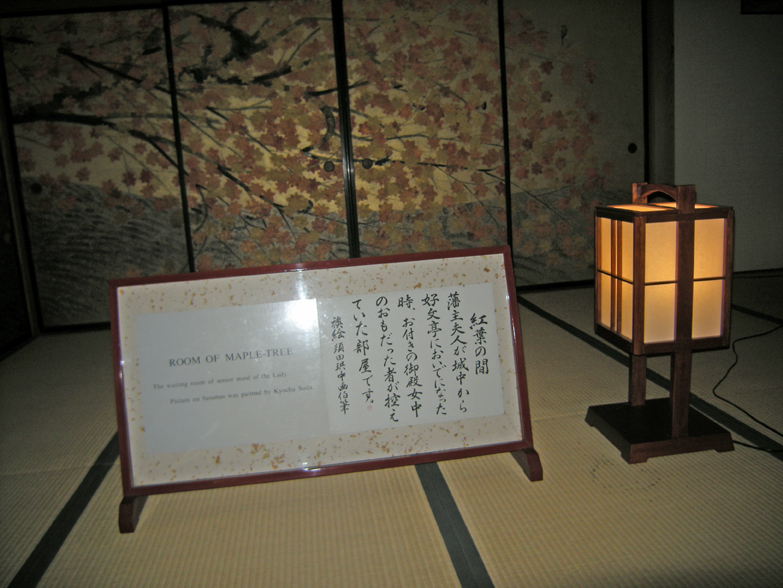 ROOM OF MAPLE-TREE
The waiting room of senior maid of the Lady.
Picture on fusumas was painted by Kyochu Suda.
紅葉の間
藩主夫人が城中から
好文亭においでになった
時、お付きの御殿女中
のおもだった者が控え
ていた部屋です。
襖絵 須田珙中画伯筆